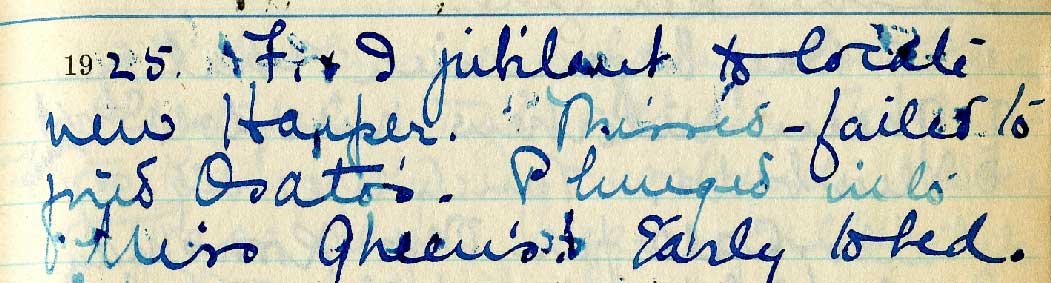 1925. F. & I jubilant to locate
new Happer. Missed - failed to
find Osato's. Plunged into
Miss Gheen's. Early to bed.